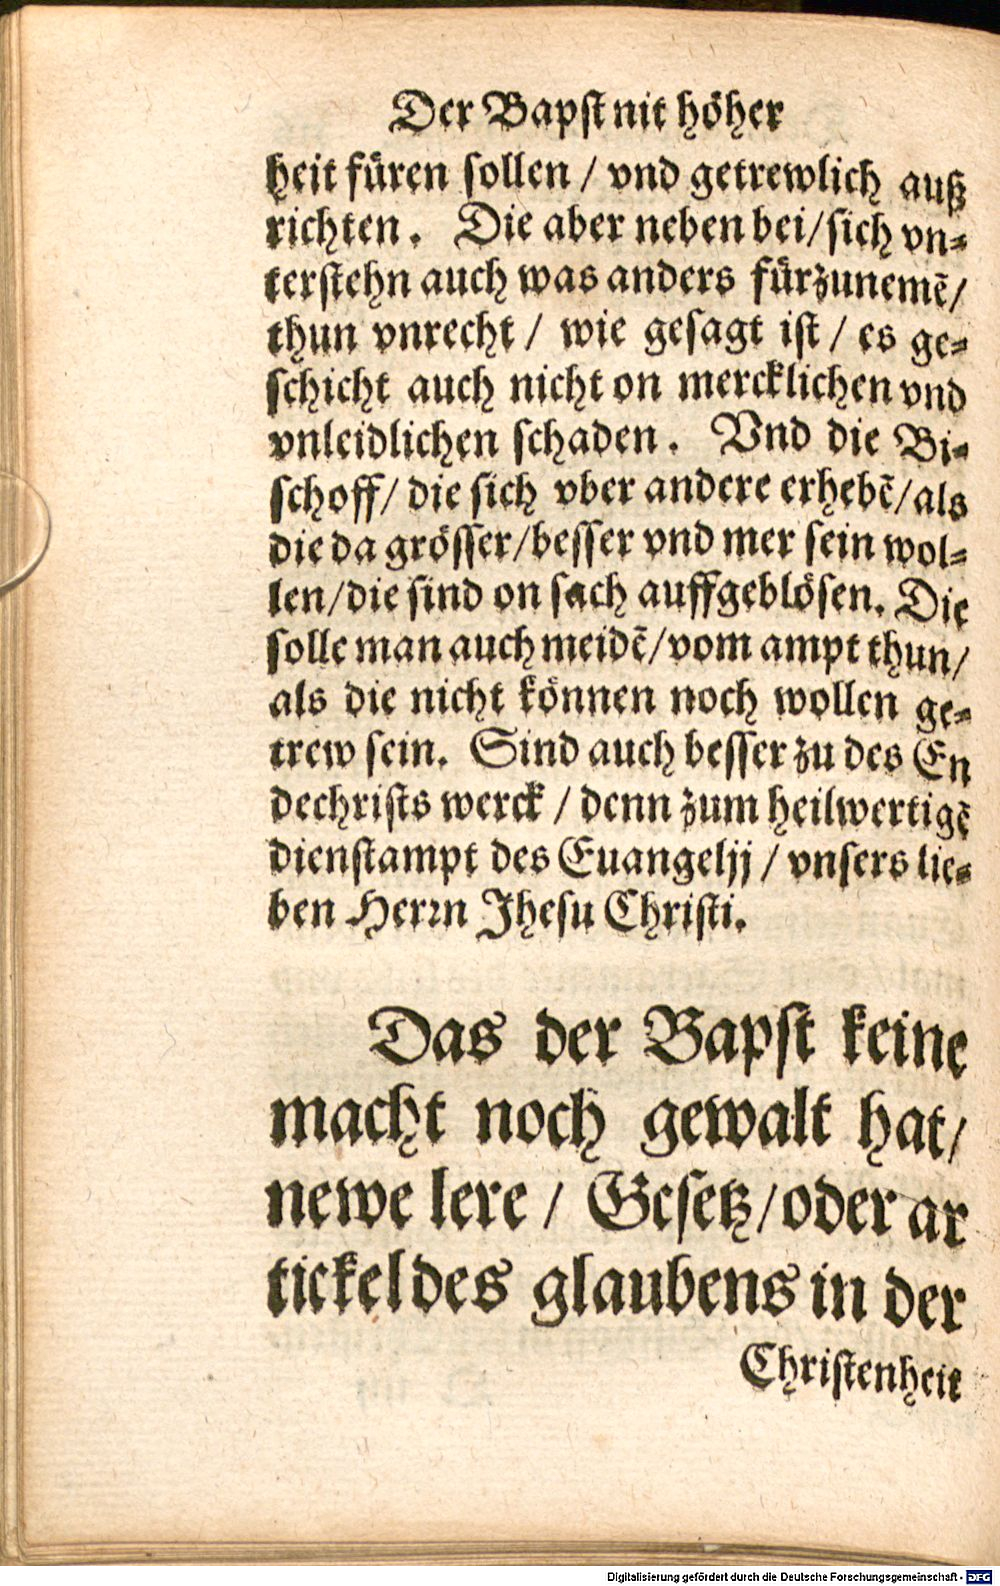 Der Bapst nit höher
heit füren sollen / vnd getrewlich auß
richten. Die aber neben bei/sich vn-
terstehn auch was anders fürzunemẽ/
thun vnrecht / wie gesagt ist / es ge-
schicht auch nicht on mercklichen vnd
vnleidlichen schaden. Vnd die Bi-
schoff/ die sich vber andere erhebẽ/als
die da grösser/besser vnd mer sein wol-
len/die sind on sach auffgeblösen. Die
solle man auch meidẽ/vom ampt thun/
als die nicht können noch wollen ge-
trew sein. Sind auch besser zu des En
dechrists werck / denn zum heilwertigẽ
dienstampt des Euangelij / vnsers lie-
ben Herrn Jhesu Christi.
Das der Bapst keine
macht noch gewalt hat/
newe lere / Gesetz/oder ar
tickel des glaubens in der
Christenheit
Digitalisierung gefördert durch die Deutsche Forschungsgemeinschaft - DFG